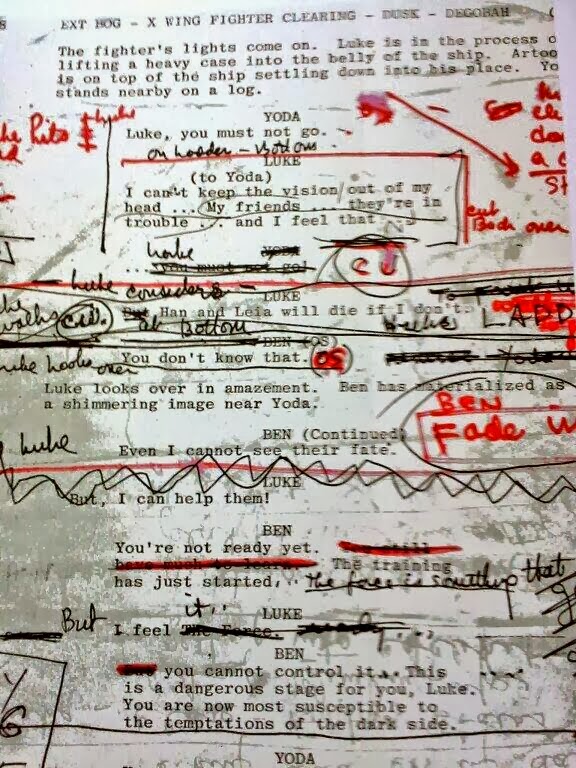 EXT BOG - X WING FIGHTER CLEARING - DUSK - DEGOBAH
The fighter's lights come on. Luke is in the process o
lifting a heavy case into the belly of the ship. Artoo
is on top of the ship settling down into his place. Yo
stands nearby on a log.
YODA
Luke, you must not go.
on ladder - bottom
LUKE
(to Yoda)
I can't keep the vision out of my
head ... My friends ... they're in
trouble ... and I feel that ...
cut
Back over
YODA
... You must not go!
CU
Luke
considers
LUKE
But Han and Leia will die if I don't.
at bottom
LADD
BEN (OS)
You don't know that.
OS
Luke looks over
Luke looks over in amazement. Ben has materialized as
a shimmering image near Yoda.
BEN
Fade in
BEN (Continued)
Luke
Even I cannot see their fate.
LUKE
But, I can help them!
BEN
You're not ready yet. You still
have much to learn. The training
has just started.. The force is something that
But
it..
LUKE
I feel The Force.
BEN
But you cannot control it.. This
is a dangerous stage for you, Luke.
You are now most susceptible to
the temptations of the dark side.
YODA